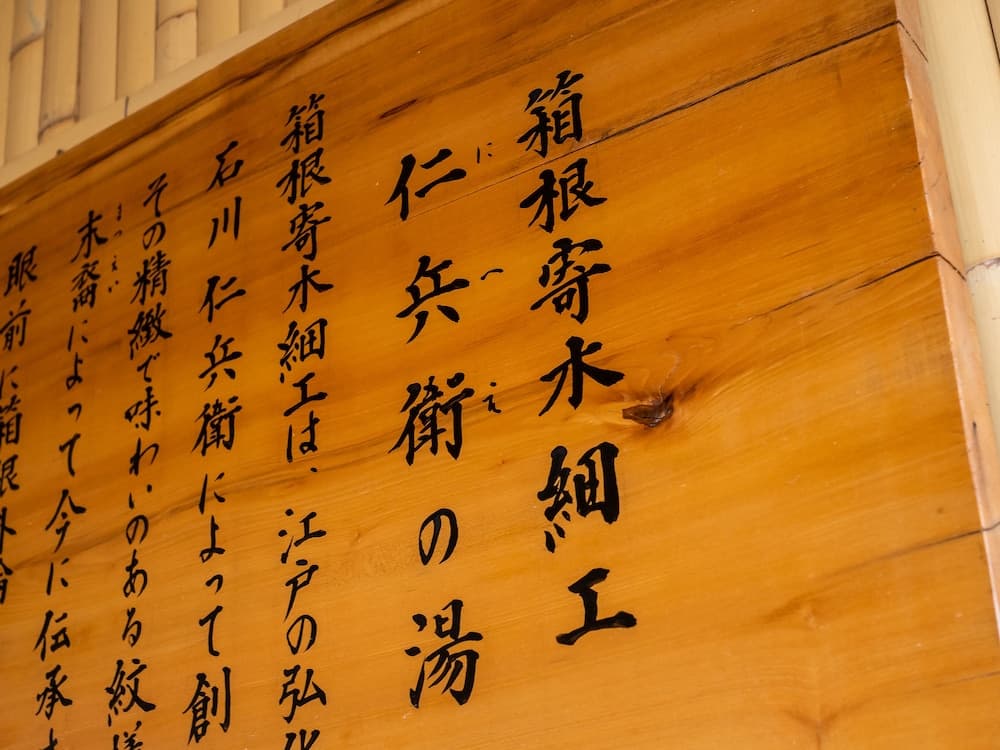 箱根寄木細工
仁兵衛の湯
にへえ
箱根寄木細工は、江戸の弘化
石川仁兵衛によって創
その精緻で味わいのある紋様
末裔によって今に伝承さ
まつえい
眼前に箱根外輪